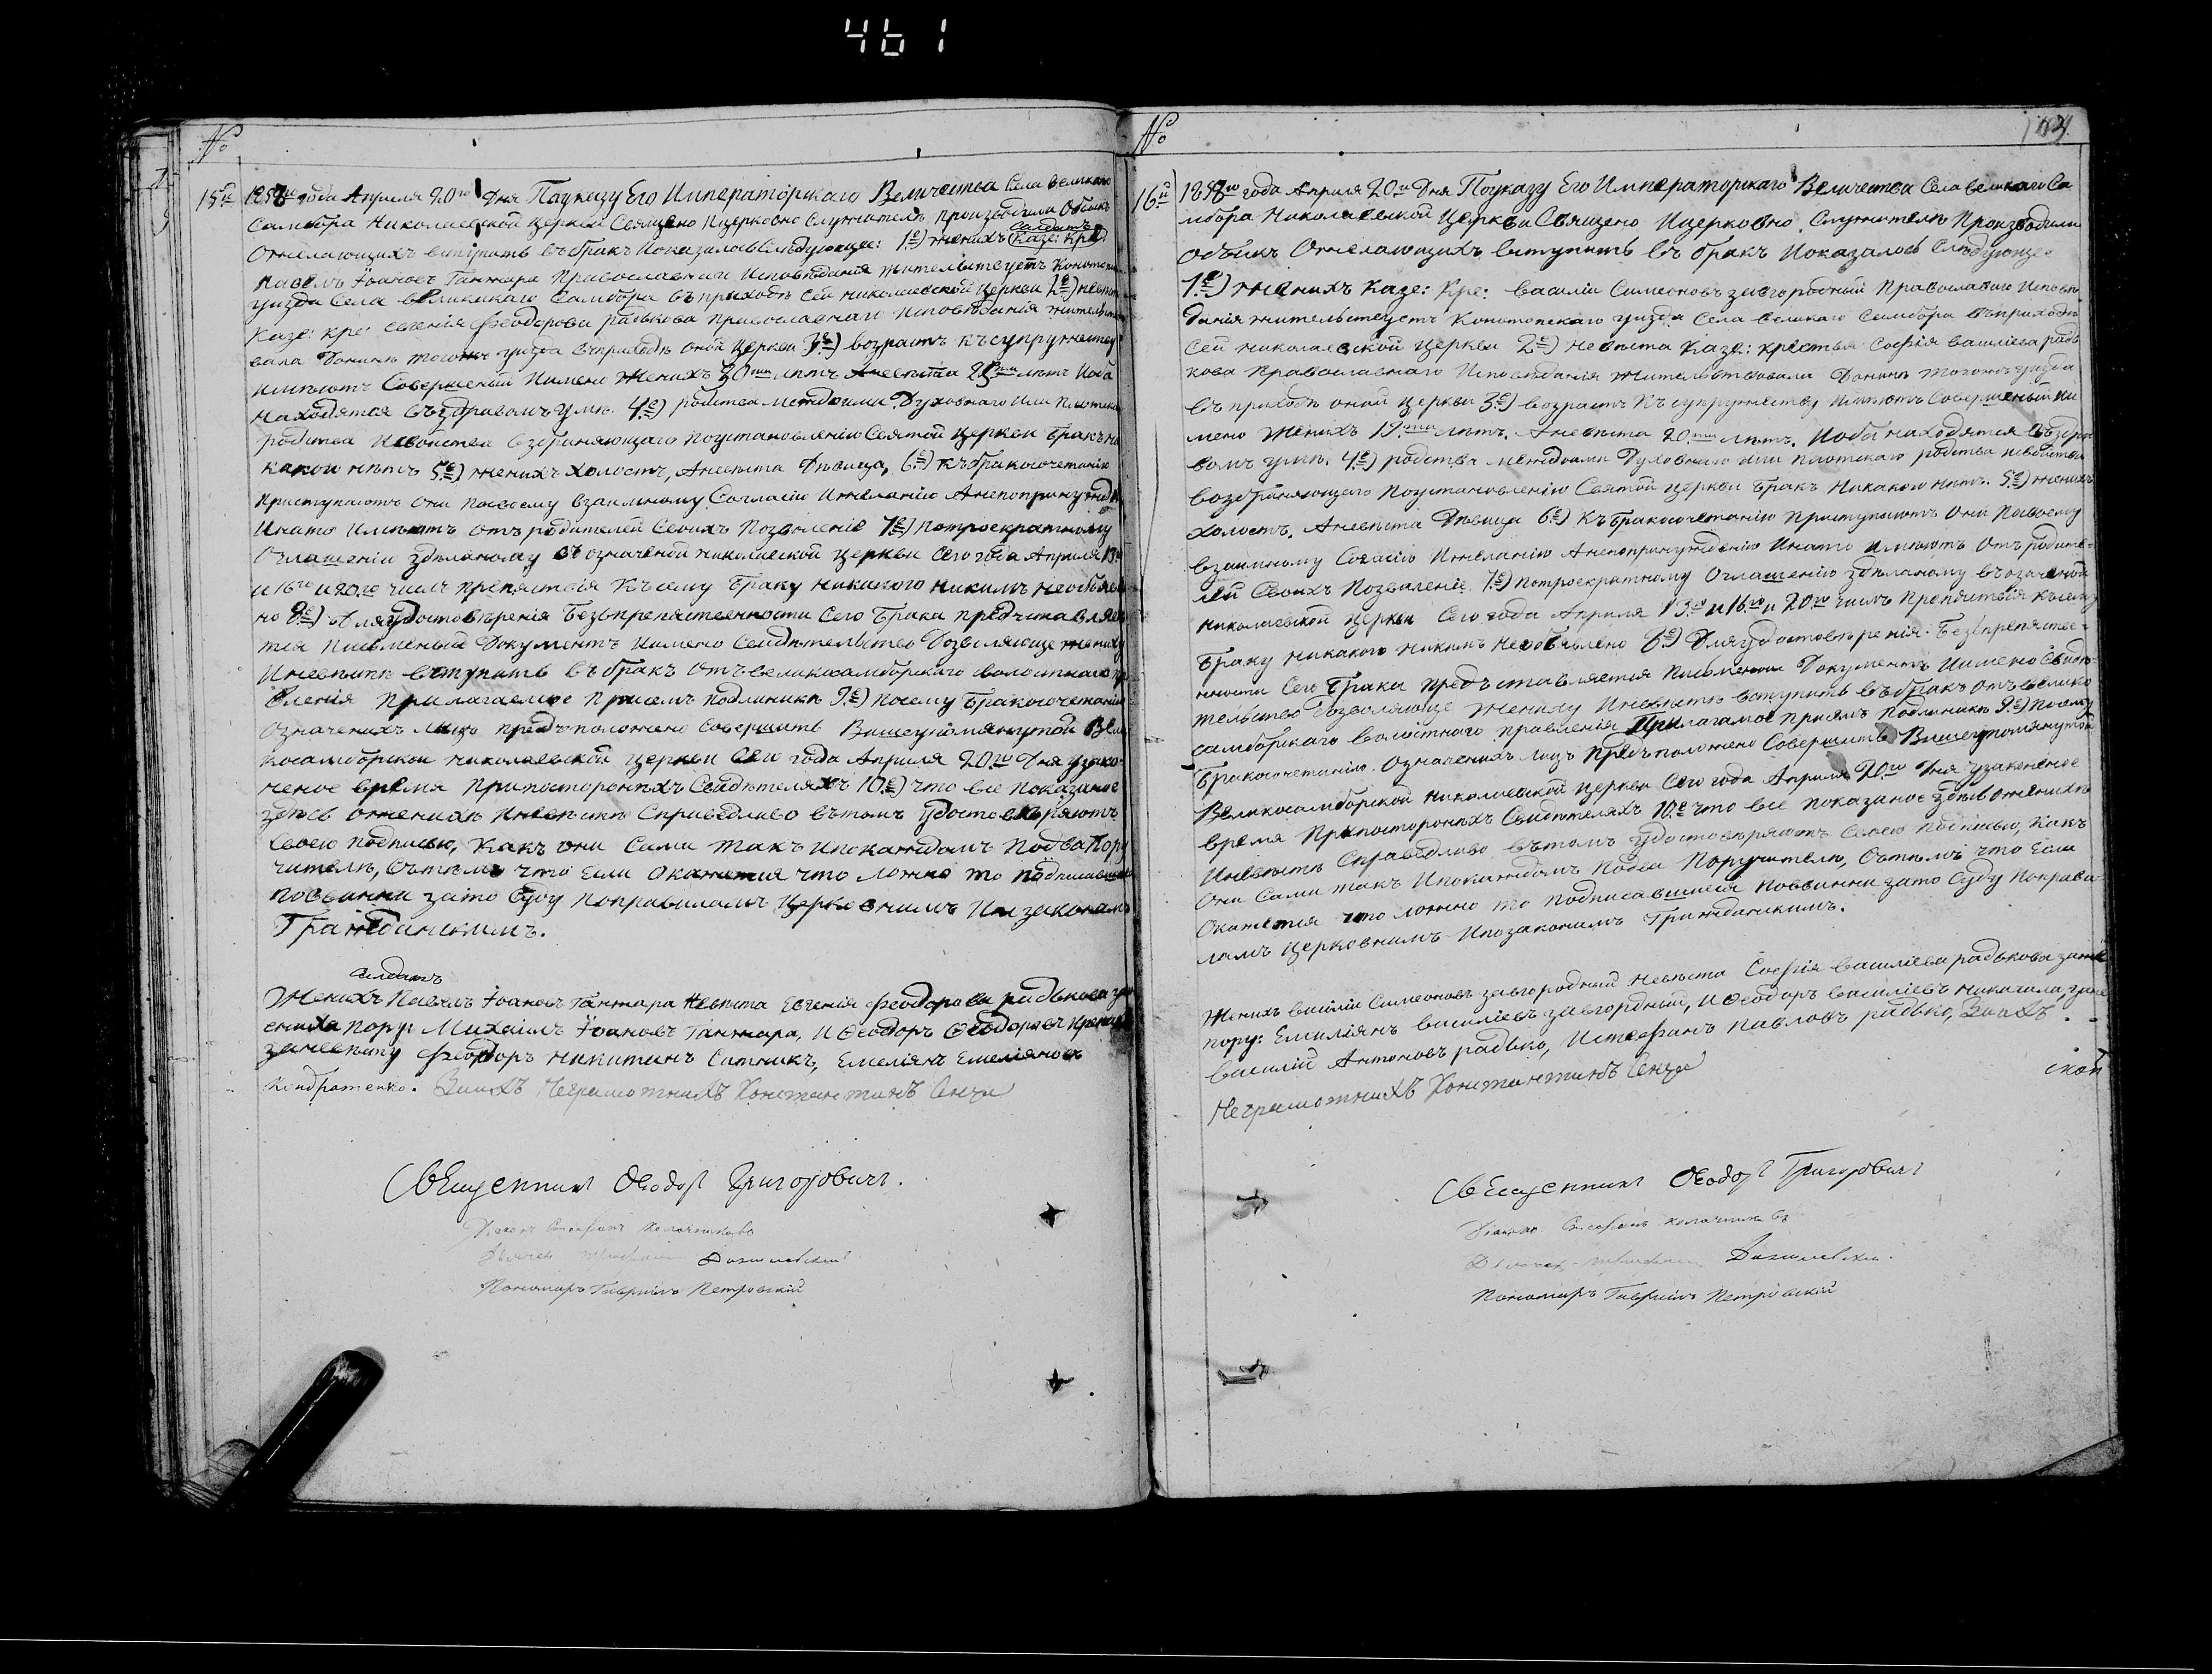 461
№
15й
1858го года Апреля 20го Дня По указу Его Императорскаго Величества Села великаго
Самбора Николаевской церкви Священо Ицерковно Служители производили Обыскъ
Ожелающихъ вступить въ бракъ Иоказалось Следующее: 1е) женихъ Казе: Кре:
солдатъ
павелъ Iоановъ Ганжара Православнаго Исповѣдания жительствуетъ Конотопс
уѣзда Села великаго Самбора въ приходѣ Сей николаевской церкви 2е) невѣста
Казе: кре: евгенія Феодорова радькова православнаго исповѣданія жительст
вала Донинѣ тогожъ уѣзда въ приходѣ оной церкви 3е) возрастъ къ супружеству
имѣютъ Совершеный Имено женихъ 30ти лѣтъ Аневѣста 25ти лѣтъ Иоба
находятся въ здравомъ умѣ. 4е) родства междоими Духовнаго Или плотскаго
родства Исвойства взбраняющаго поустановленію Святой церкви бракъ ни
какои нѣтъ 5е) женихъ холостъ, Аневѣста Дѣвица, 6е) Къ бракосочетанію
приступаютъ Они посвоему взаимному Согласію Ижеланію Анепопринужде
Инато Имѣютъ отъ родителей Своихъ Позволеніе 7е) Потроекратному
Оглашенію здѣланому въ означеной николаевской церкви Сего года Апреля 13го
и 16го и 20го числ препятствія Къ сему браку никакого никимъ Необъявле
но 8е) Для удостовѣренія безпрепятственности Сего брака представляе
тся письменый Документъ Имено Свидѣтельство Дозволяюще жениху
Иневѣстѣ вступить въ бракъ отъ великосамборскаго волостнаго пр
вленія прилагаемое присемъ подлиникѣ 9е) посему бракосочетанію
означеныхъ лицъ предположено Совершить Вишеупомянутой Вели
косамборской николаевской церкви Сего года Апреля 20го Дня узако
неное время припостороныхъ Свидѣтеляхъ 10е) что все показаное
здѣсь ожениxѣ Иневѣстѣ Справедливо въ томъ удостовѣряютъ
своею подписью, Какъ они Сами такъ Ипокаждомъ подва пору
чителѣ, Сътѣмъ что Если Окажется что ложно то подписавшіеся
повинни зато Суду поправиламъ церковнимъ Ипозаконамъ
Гражданскимъ.
солдатъ
Женихъ Павелъ Iоановъ Ганжара Невѣста Евгенія Феодорова радькова зж
ениха пору: Михаилъ Iоановъ Ганжара, И Ѳеодоръ Ѳеодоровъ
заневѣсту Феодоръ никитинъ Ситникъ, Емеліянъ Емеліяновъ
Кондратенко. Заихъ Неграмотнихъ Константинъ Сенза
Священникъ Ѳеодоръ Григоровичъ.
Діаконъ Стефанъ
Дячекъ Данилевскій
Пономаръ Гавріилъ Петровскій
№
16й
1858го года Апреля 20го Дня По указу Его Императорскаго Величества Села великаго Са
мбора Николаевской церкви Священо Ицерковно Служители Производили
обыскъ Ожелающихъ вступить въ бракъ Иоказалось Следующее
1е) женихъ Казе: Кре: василій Симеоновъ завгородный Православнаго Исповѣ
данія жительствуетъ Конотопскаго уѣзда Села великаго Самбора въ приходѣ
Сей николаевской церкви 2е) Невѣста Казе: крестья Софія василіева радь
кова православнаго Исповѣданія жительствовала Донинѣ тогожъ уѣзда
въ приходѣ оной церкви 3е) возрастъ Къ супружеству имѣютъ Совершеный И
мено женихъ 19ти лѣтъ. Аневѣста 20ти лѣтъ. Иоба находятся въ здра
вомъ умѣ. 4е) родства междоими Духовнаго или плотскаго родства исвойства
возбраняющаго Поустановленію Святой церкви бракъ Никакого нѣтъ. 5е) женихъ
Холостъ, Аневѣста Дѣвица 6е) Къ бракосочетанію приступаютъ Они посвоему
взаимному Согласію Ижеланію Анепопринужденію Инато имѣютъ Отъ родите
лей Своихъ Позволеніе. 7е) Потроекратному Оглашенію здѣланому въ означеной
николаевской церкви Сего года Апреля 13го и 16го и 20го числъ Препятствія Къ сему
браку никакого никимъ Необъявлено 8е) Для удостовѣренія безпрепятстве
нности Сего брака предъставляется письменый Документъ Имено Свидѣ
тельство дозволяюще жениху Иневѣстѣ вступить въ бракъ отъ велико
самборскаго волостнаго правленія прилагамое присемъ подлиникѣ 9е) посему
бракосочетанію означенихъ лицъ предъположено Совершить Вишеупомянутой
Великосамборской николаевской церкви Сего года Апреля 20го Дня узаконеное
время припостороныхъ Свидѣтеляхъ 10е что все показаное здѣсь Ожениxѣ
Иневѣстѣ Справедливо въ томъ удостовѣряютъ Своею подписью, Какъ
Они Сами такъ Ипокаждомъ подва поручителѣ, Сътѣмъ что Если
Окажется что ложно то подписавшіеся повинни зато Суду поправи
ламъ церковнимъ Ипозаконамъ Гражданскимъ.
Женихъ василій Симеоновъ завгородный Невѣста Софія василіева радькова зажен
пору: Емиліянъ василіевъ завгордный, И Ѳеодоръ василіевъ зане
василій Антоновъ радько, Истефанъ Павловъ радько, Заихъ
Неграмотнихъ Константинъ Сенза
Священникъ Ѳеодоръ Григоровичъ
Діаконъ Стефанъ
Дячекъ Данилевскій
Пономаръ Гавріилъ Петровскій